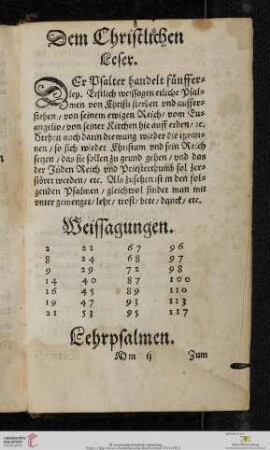 Dem Christlichen
Leser.
DEr Psalter handelt fünffer-
ley. Erstlich weissagen etliche Psal-
men von Christi sterben vnd auffer-
stehen/ von seinem ewigen Reich/ vom Eu-
angelio/ von seiner Kirchen hie auff erden/ ꝛc.
Drehen auch darin drewung wieder die tyrann-
nen/ so sich wieder Christum vnd sein Reich
setzen/ das sie sollen zu grund gehen/ vnd das
der Jüden Reich vnd Priesterthumb sol zer-
störet werden/ etc. Als zusehen ist in den fol-
genden Psalmen/ gleichwol findet man mit
vnter gemenget/ lehr/ trost/ bete/ danck/ etc.
Weissagungen.
2 22 67 96
8 24 68 97
9 29 72 98
14 40 87 100
16 45 89 110
19 47 93 113
21 53 95 117
Lehrpsalmen.
Mm ij Zum